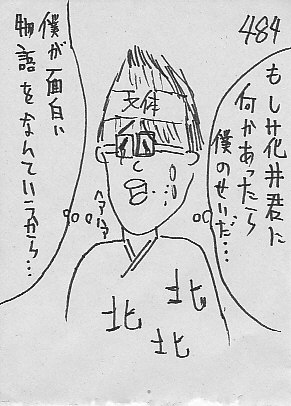 484
もし花井君に
何かあったら
僕のせいだ…
天体
僕が面白い
物語をなんていうから…
ハァハァ
北
北
北